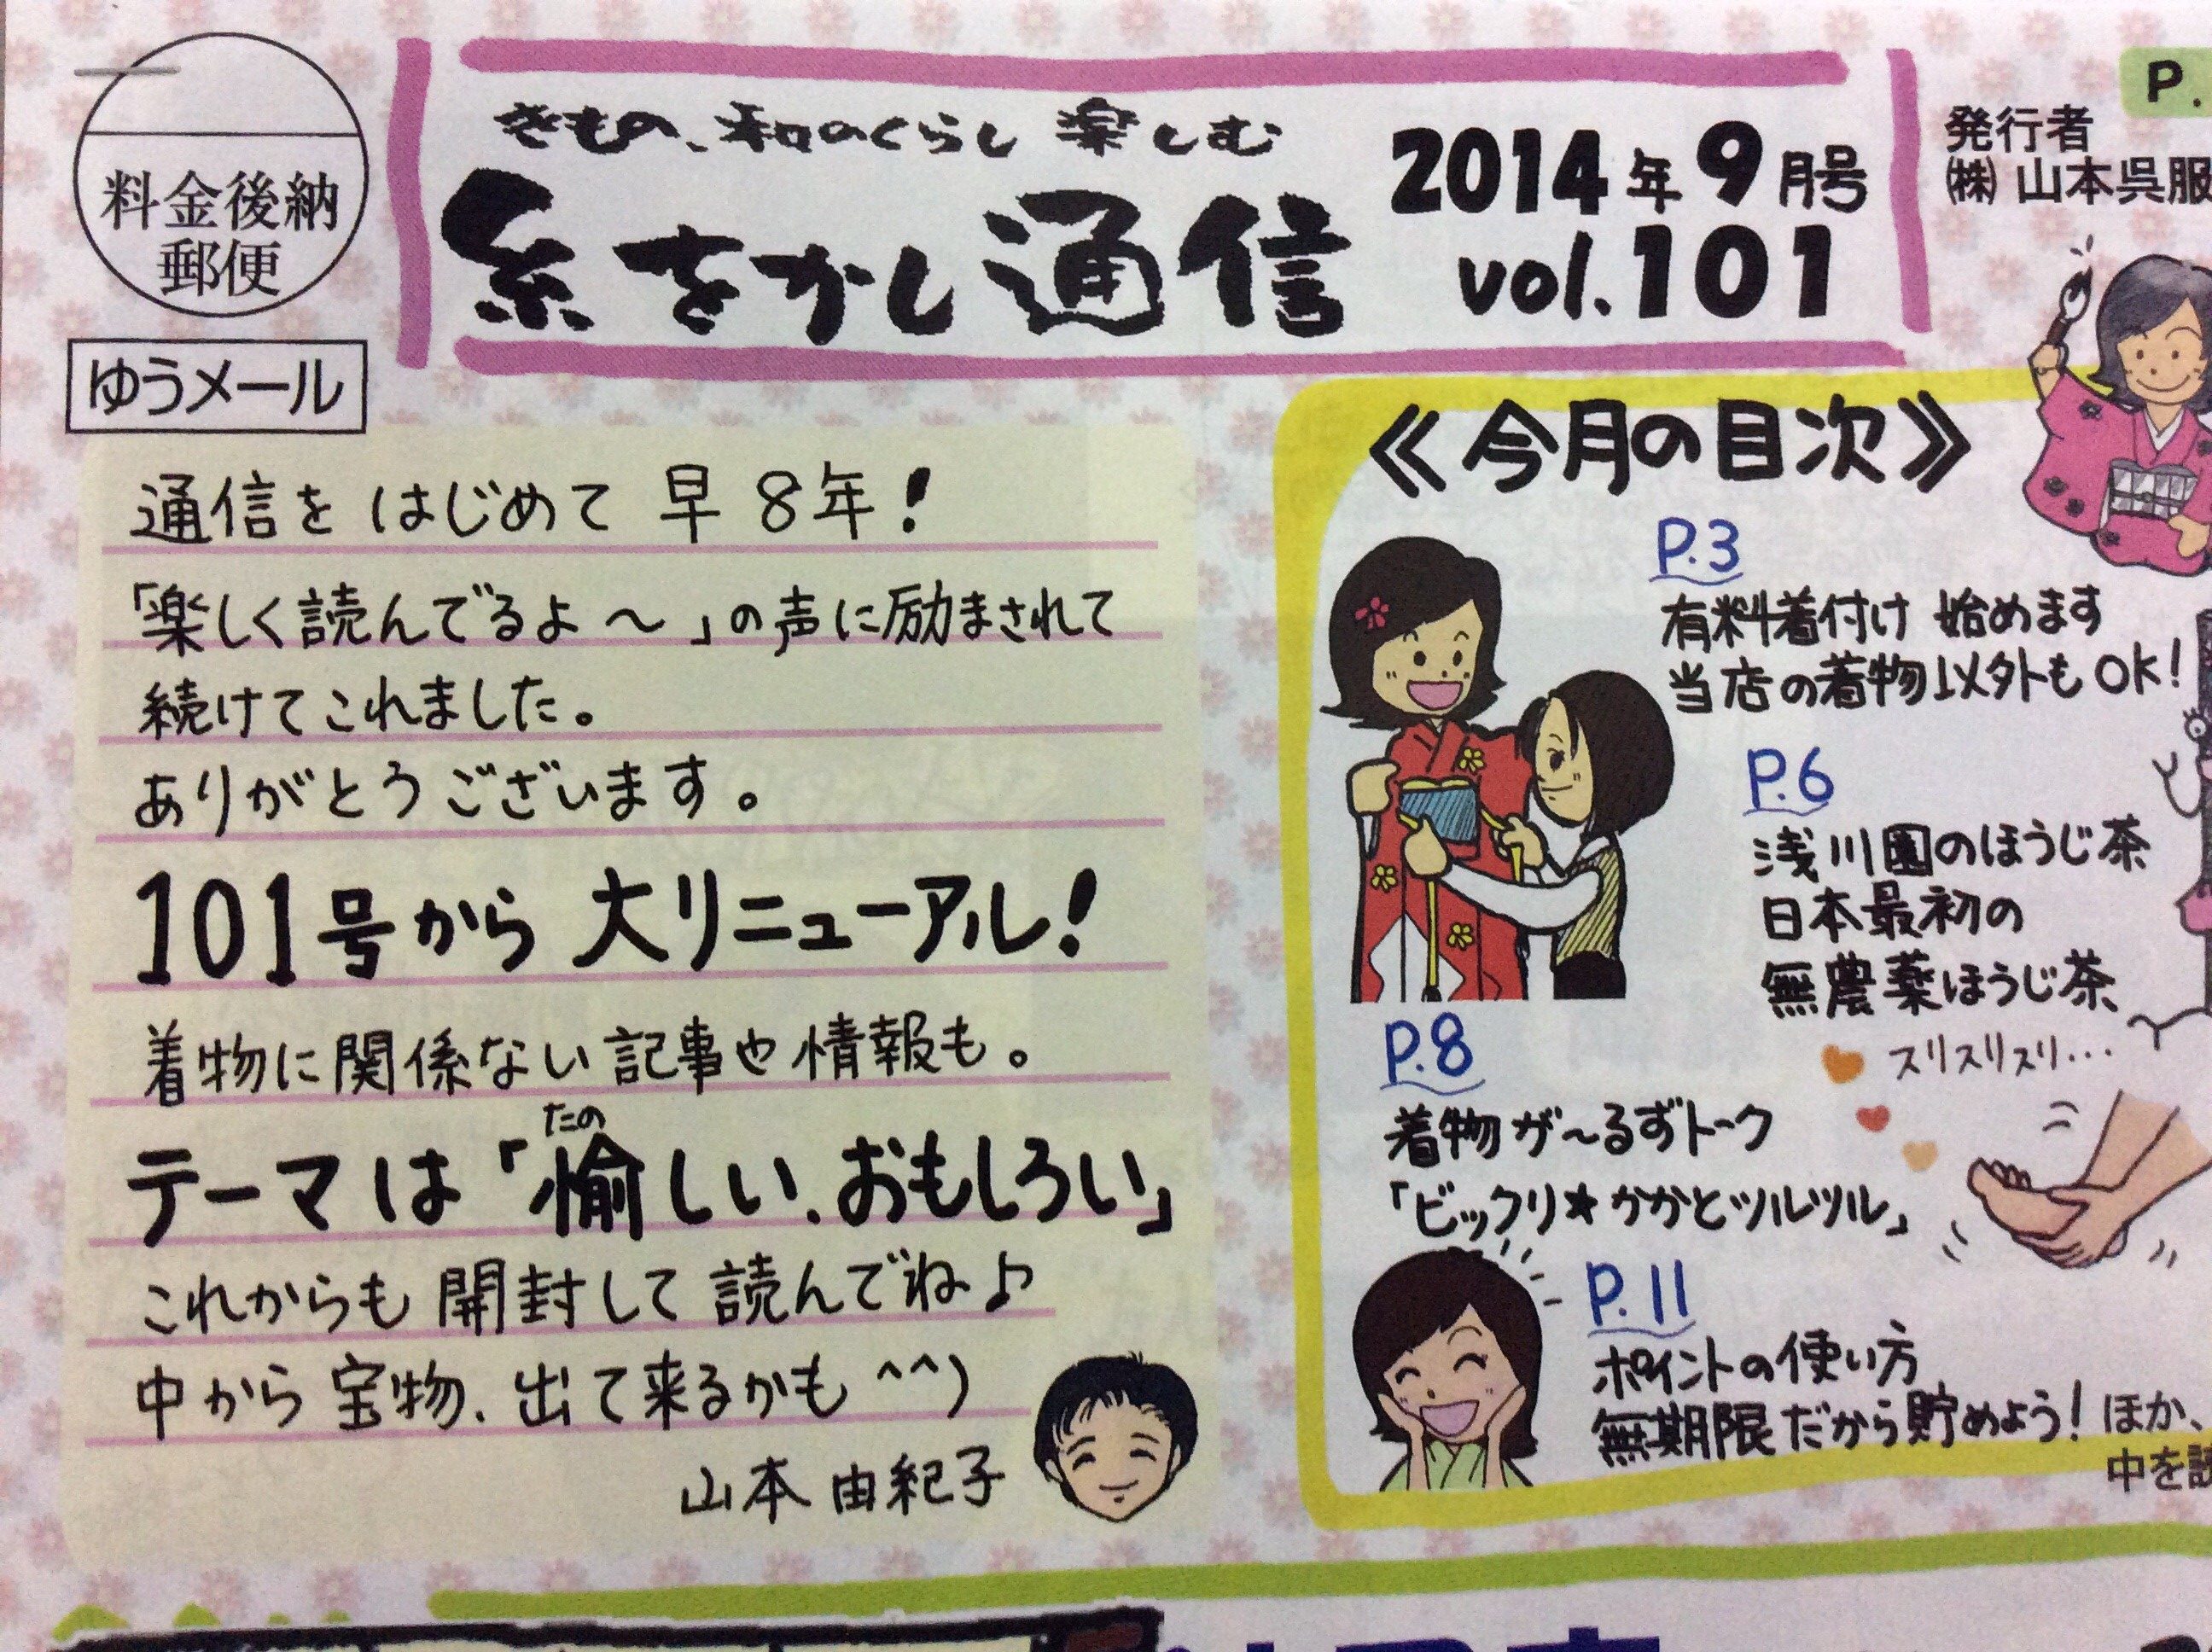 料金後納
郵便
ゆうメール
きもの、和のくらし 楽しむ
糸をかし通信
2014年9月号
vol.101
発行者
㈱山本呉服
P.
通信を はじめて 早 8年!
「楽しく読んでるよ～」の声に励まされて
続けてこれました。
ありがとうございます。
101号から 大リニューアル!
着物に関係ない記事や情報も。
たの
テーマは「愉しい、おもしろい」
これからも 開封して 読んでね♪
中から宝物、出て来るかも ^^)
山本 由紀子
《今月の目次》
P.3
有料着付け 始めます
当店の着物以外もOK!
P.6
浅川園のほうじ茶
日本最初の
無農薬ほうじ茶
スリスリスリ…
P.8
着物が～るずトーク
「ビックリ★かかとツルツル」
P.11
ポイントの使い方
無期限だから貯めよう!
ほか、
中を読